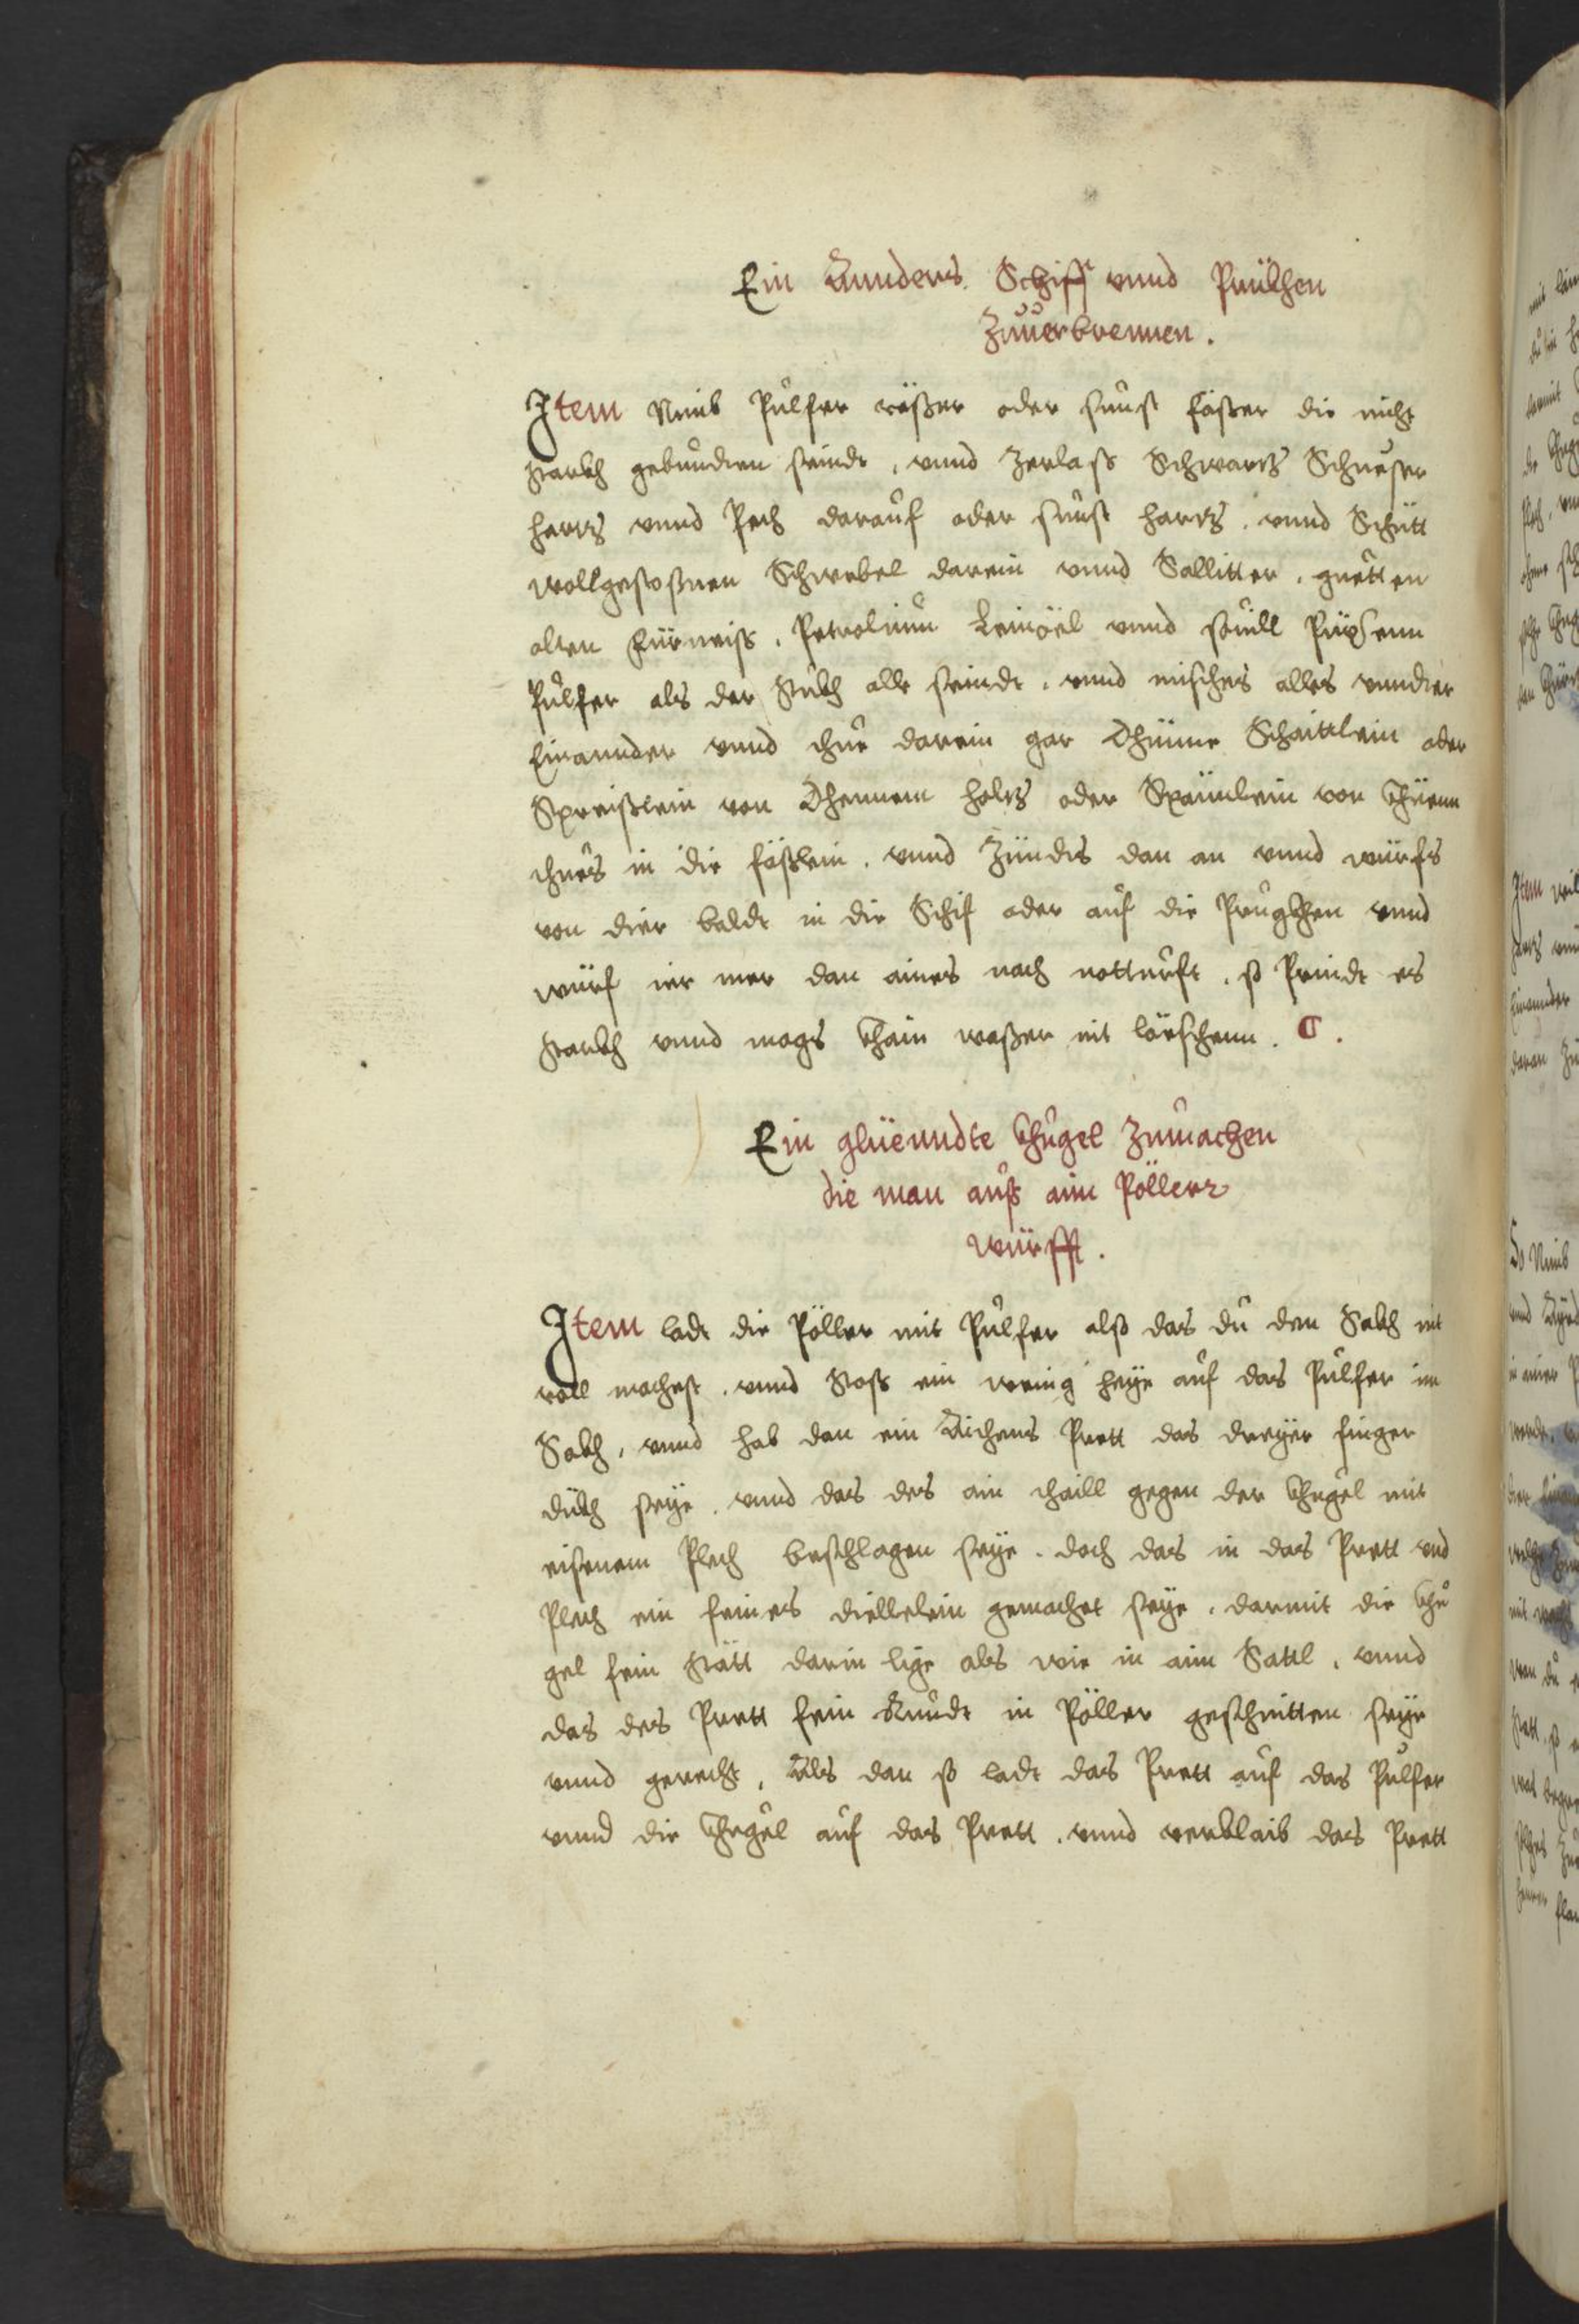 Ein Annders Schiff vnnd Prukhen
Zuuerbrennen.
Item Nimb Pulfer väßer oder sunst fäßer die nicht
starkh gebunden seindt, vnnd zerlass Schwartz Schuester
hartz vnnd Pech darauf oder sunst hartz, vnnd Schütt
wollgestoßnen Schwebel darein vnnd Sallitter, guetten
alten Fürneiss, Petrolium Leinöel vnnd souill Püxsenn
Pulfer als der stukh alle seindt, vnnd mischs alles vnndter
Einannder vnnd thue darein gar Dhünne Schaittlein oder
Spreißlein von Dhennem holtz oder Späunlein von Khüenn
thues in die fäßlein, vnnd Zündts dan an vnnd würfs
von dier baldt in die Schif oder auf die Prugkhen vnnd
würf ier mer dan aines nach notturft, so Prindt es
starkh vnnd mags khain waßer nit löschenn. C.
Ein glüenndte Khugel Zumachen
die man auß aim Pöllerr
würfft.
Item ladt die Pöller mit Pulfer also das du den Sakh nit
voll machest, vnnd stoss ein wenig heye auf das Pulfer im
Sakh, vnnd hab dan ein Aichens Prett das dreyer finger
dükh seye, vnnd das des ain thaill gegen der Khugel mit
eisenem Plech beschlagen seye, doch das in das Prett vnd
Plech ein feines diellelein gemachet seye, darmit die Khu
gel fein stätt darin lige als wie in aim Sattl, vnnd
das des Prett fein Rundt in Pöller geschnitten seye
vnnd gerecht, Als dan so ladt das Prett auf das Pulfer
vnnd die Khugel auf das Prett, vnnd verklaib das Prett